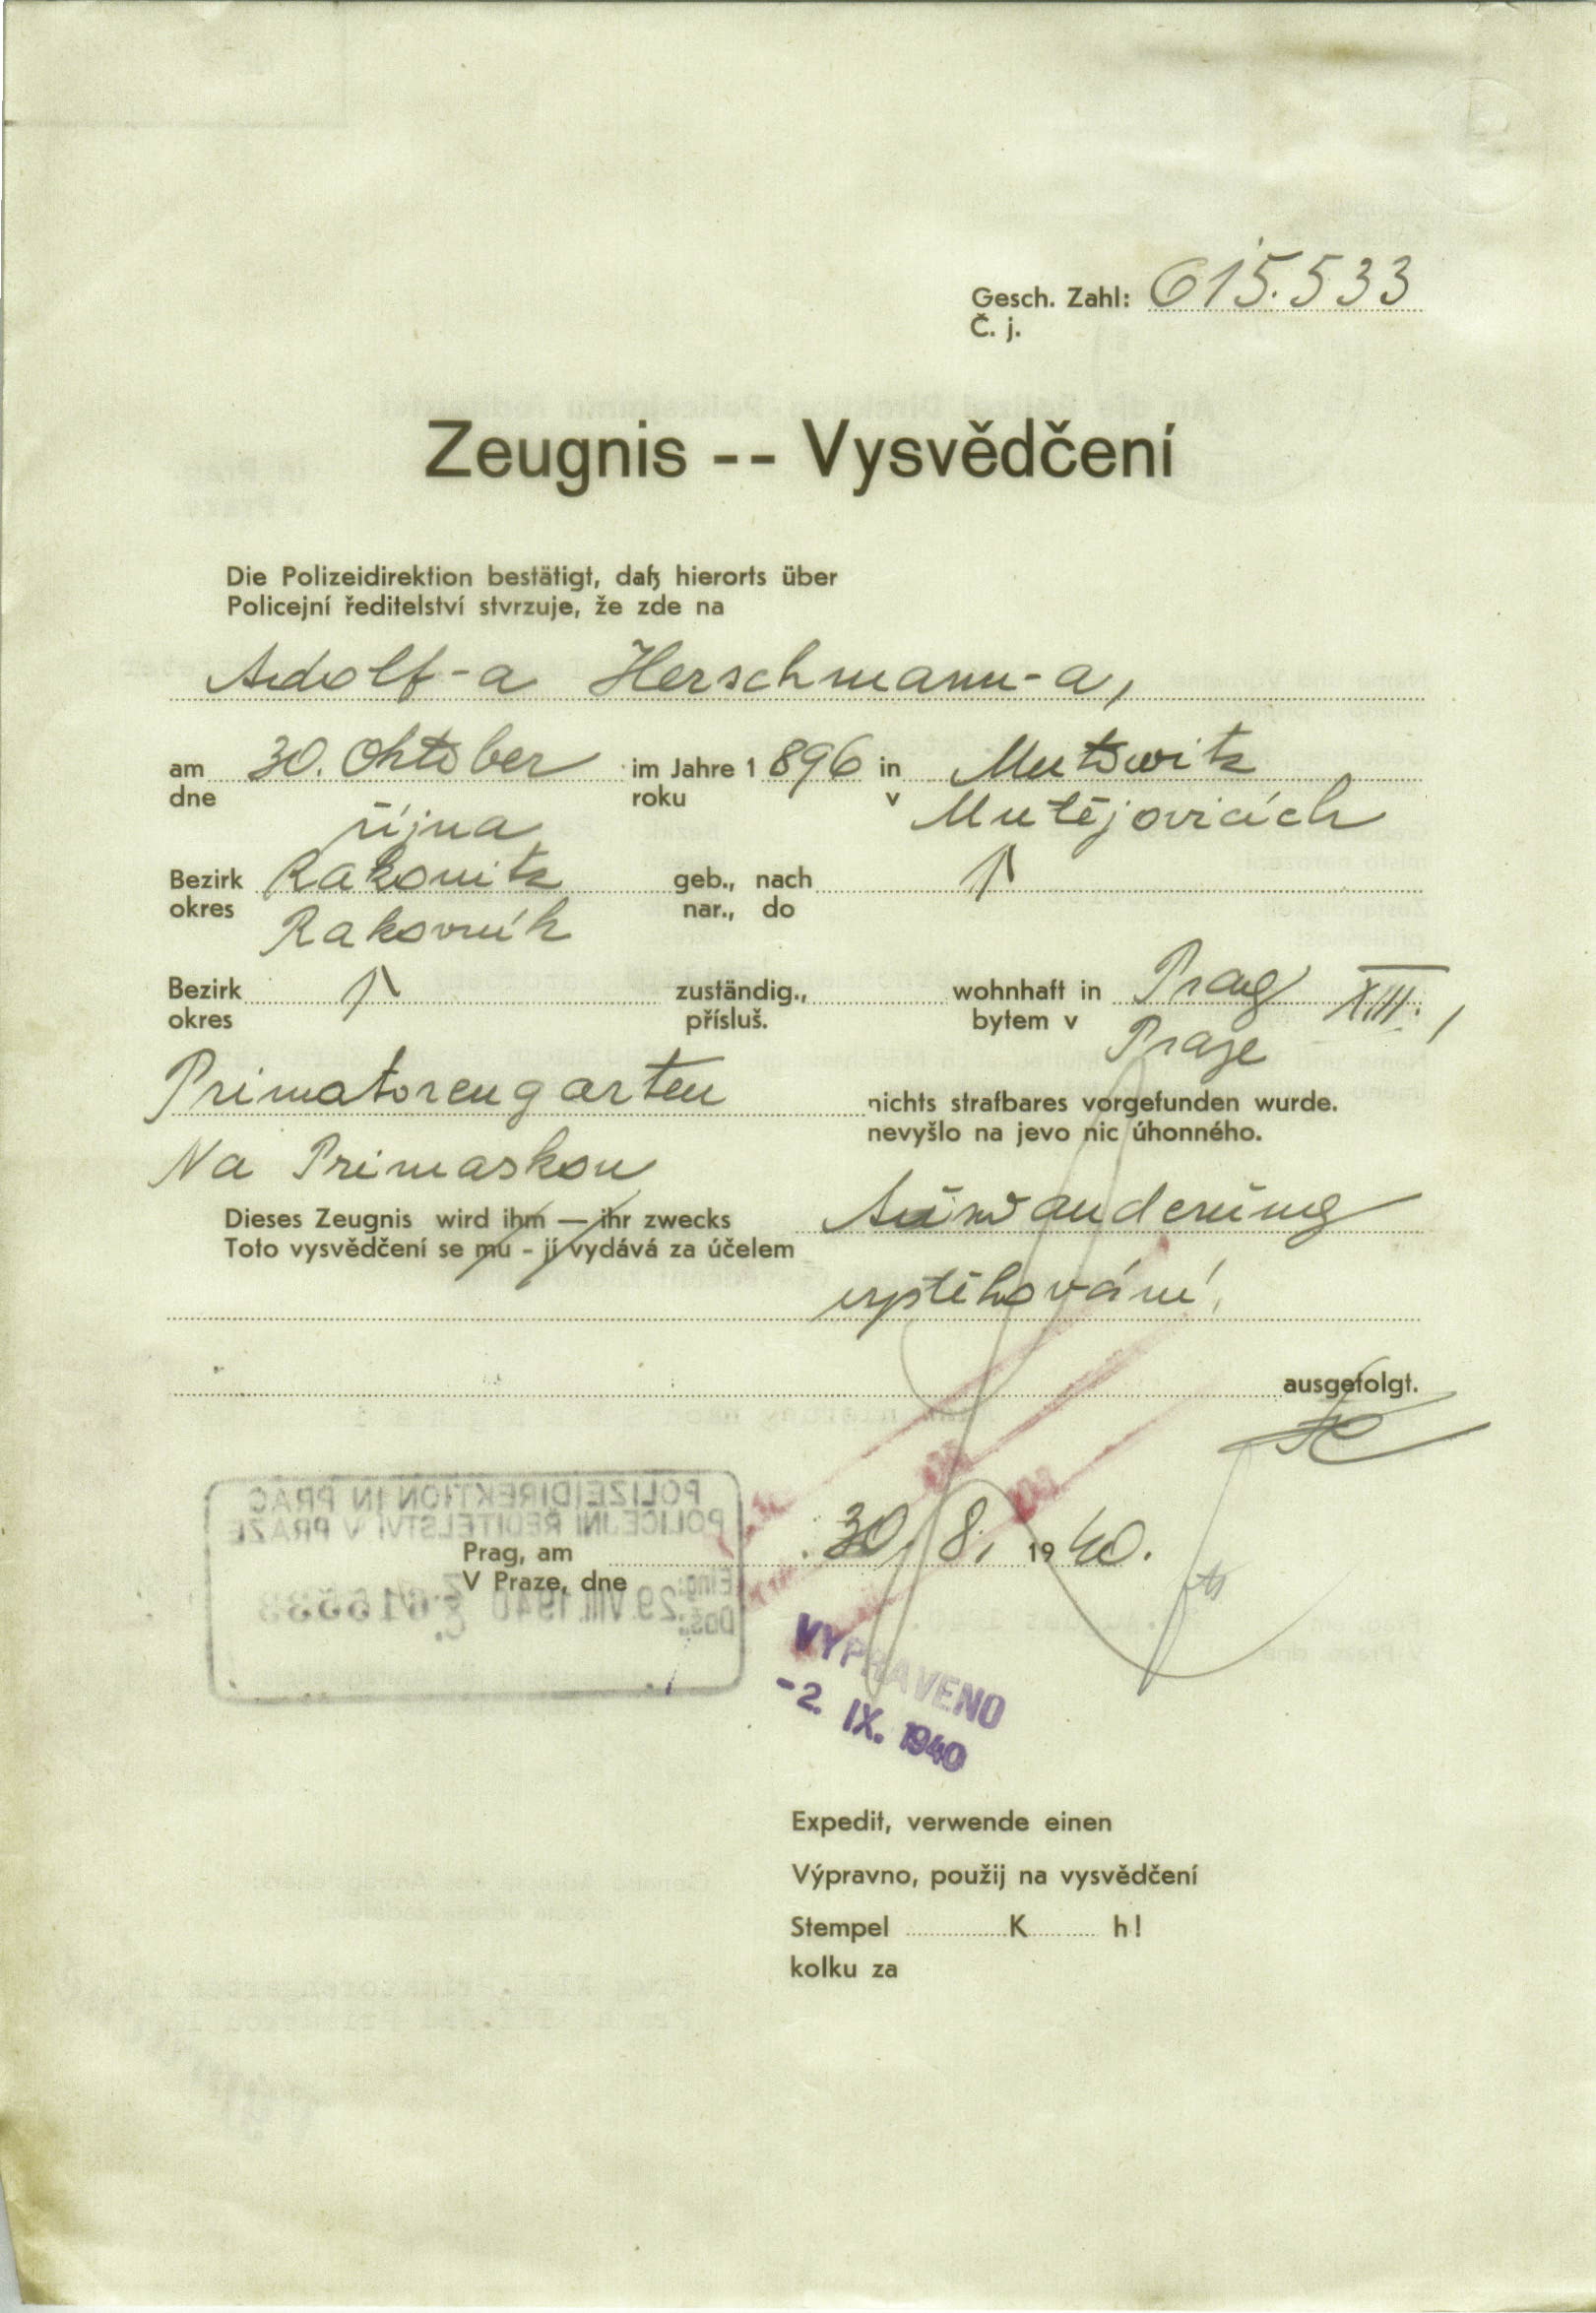 Gesch. Zahl: 615.533
Č. j.
Zeugnis -- Vysvědčení
Die Polizeidirektion bestätigt, daß hierorts über
Policejní ředitelství stvrzuje, že zde na
Adolf-a Herschmann-a,
am 30. Oktober im Jahre 1 896 in Mutowitz
dne října roku v Mutějovicích
Bezirk Rakonitz geb., nach
okres Rakovník nar., do
Bezirk zuständig., wohnhaft in Prag XIII.,
okres přísluš. bytem v Praze
Primatorengarten nichts strafbares vorgefunden wurde.
nevyšlo na jevo nic úhonného.
Na Primaskou
Dieses Zeugnis wird ihm — ihr zwecks Auswanderung
Toto vysvědčení se mu - jí vydává za účelem
vystěhování
ausgefolgt.
POLIZEIDIREKTION IN PRAG
POLICEJNÍ ŘEDITELSTVÍ V PRAZE
Prag, am 30/8. 1940.
V Praze, dne
Eing.: 29. VIII. 1940 615533
Doš.: č.
VYPRAVENO
-2. IX. 1940
Expedit, verwende einen
Výpravno, použij na vysvědčení
Stempel K h!
kolku za